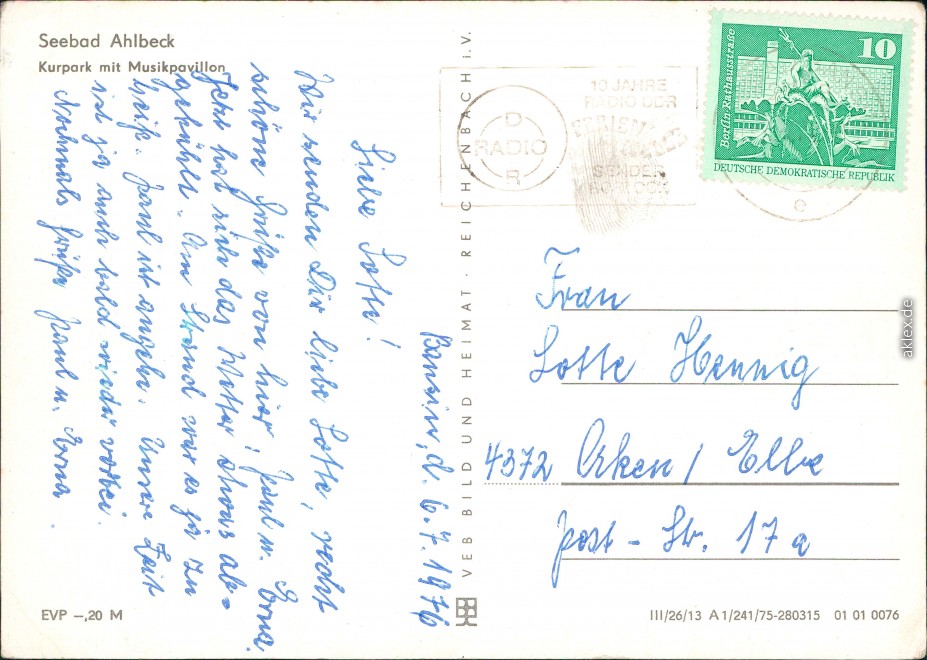 Seebad Ahlbeck
Kurpark mit Musikpavillon
Bansin, d. 6.7.1976
Liebe Lotte!
Wir senden Dir liebe Lotte, recht
schöne Grüße von hier, Paul u. Erna.
Jetzt hat sich das Wetter etwas ab=
gekühlt. Am Strand war es ja zu
heiß. Paul ist angeln. Unsere Zeit
ist ja auch bald wieder vorbei.
Nochmals Grüße Paul u. Erna.
EVP –,20 M
VEB BILD UND HEIMAT · REICHENBACH i. V.
10 JAHRE
RADIO DDR
D
RADIO
R
SENDER
ROSTOCK
10
Berlin, Rathausstraße
DEUTSCHE DEMOKRATISCHE REPUBLIK
e
Frau
Lotte Hennig
4372 Aken / Elbe
Post-Str. 17a
III/26/13 A 1/241/75-280315 01 01 0076
aklex.de